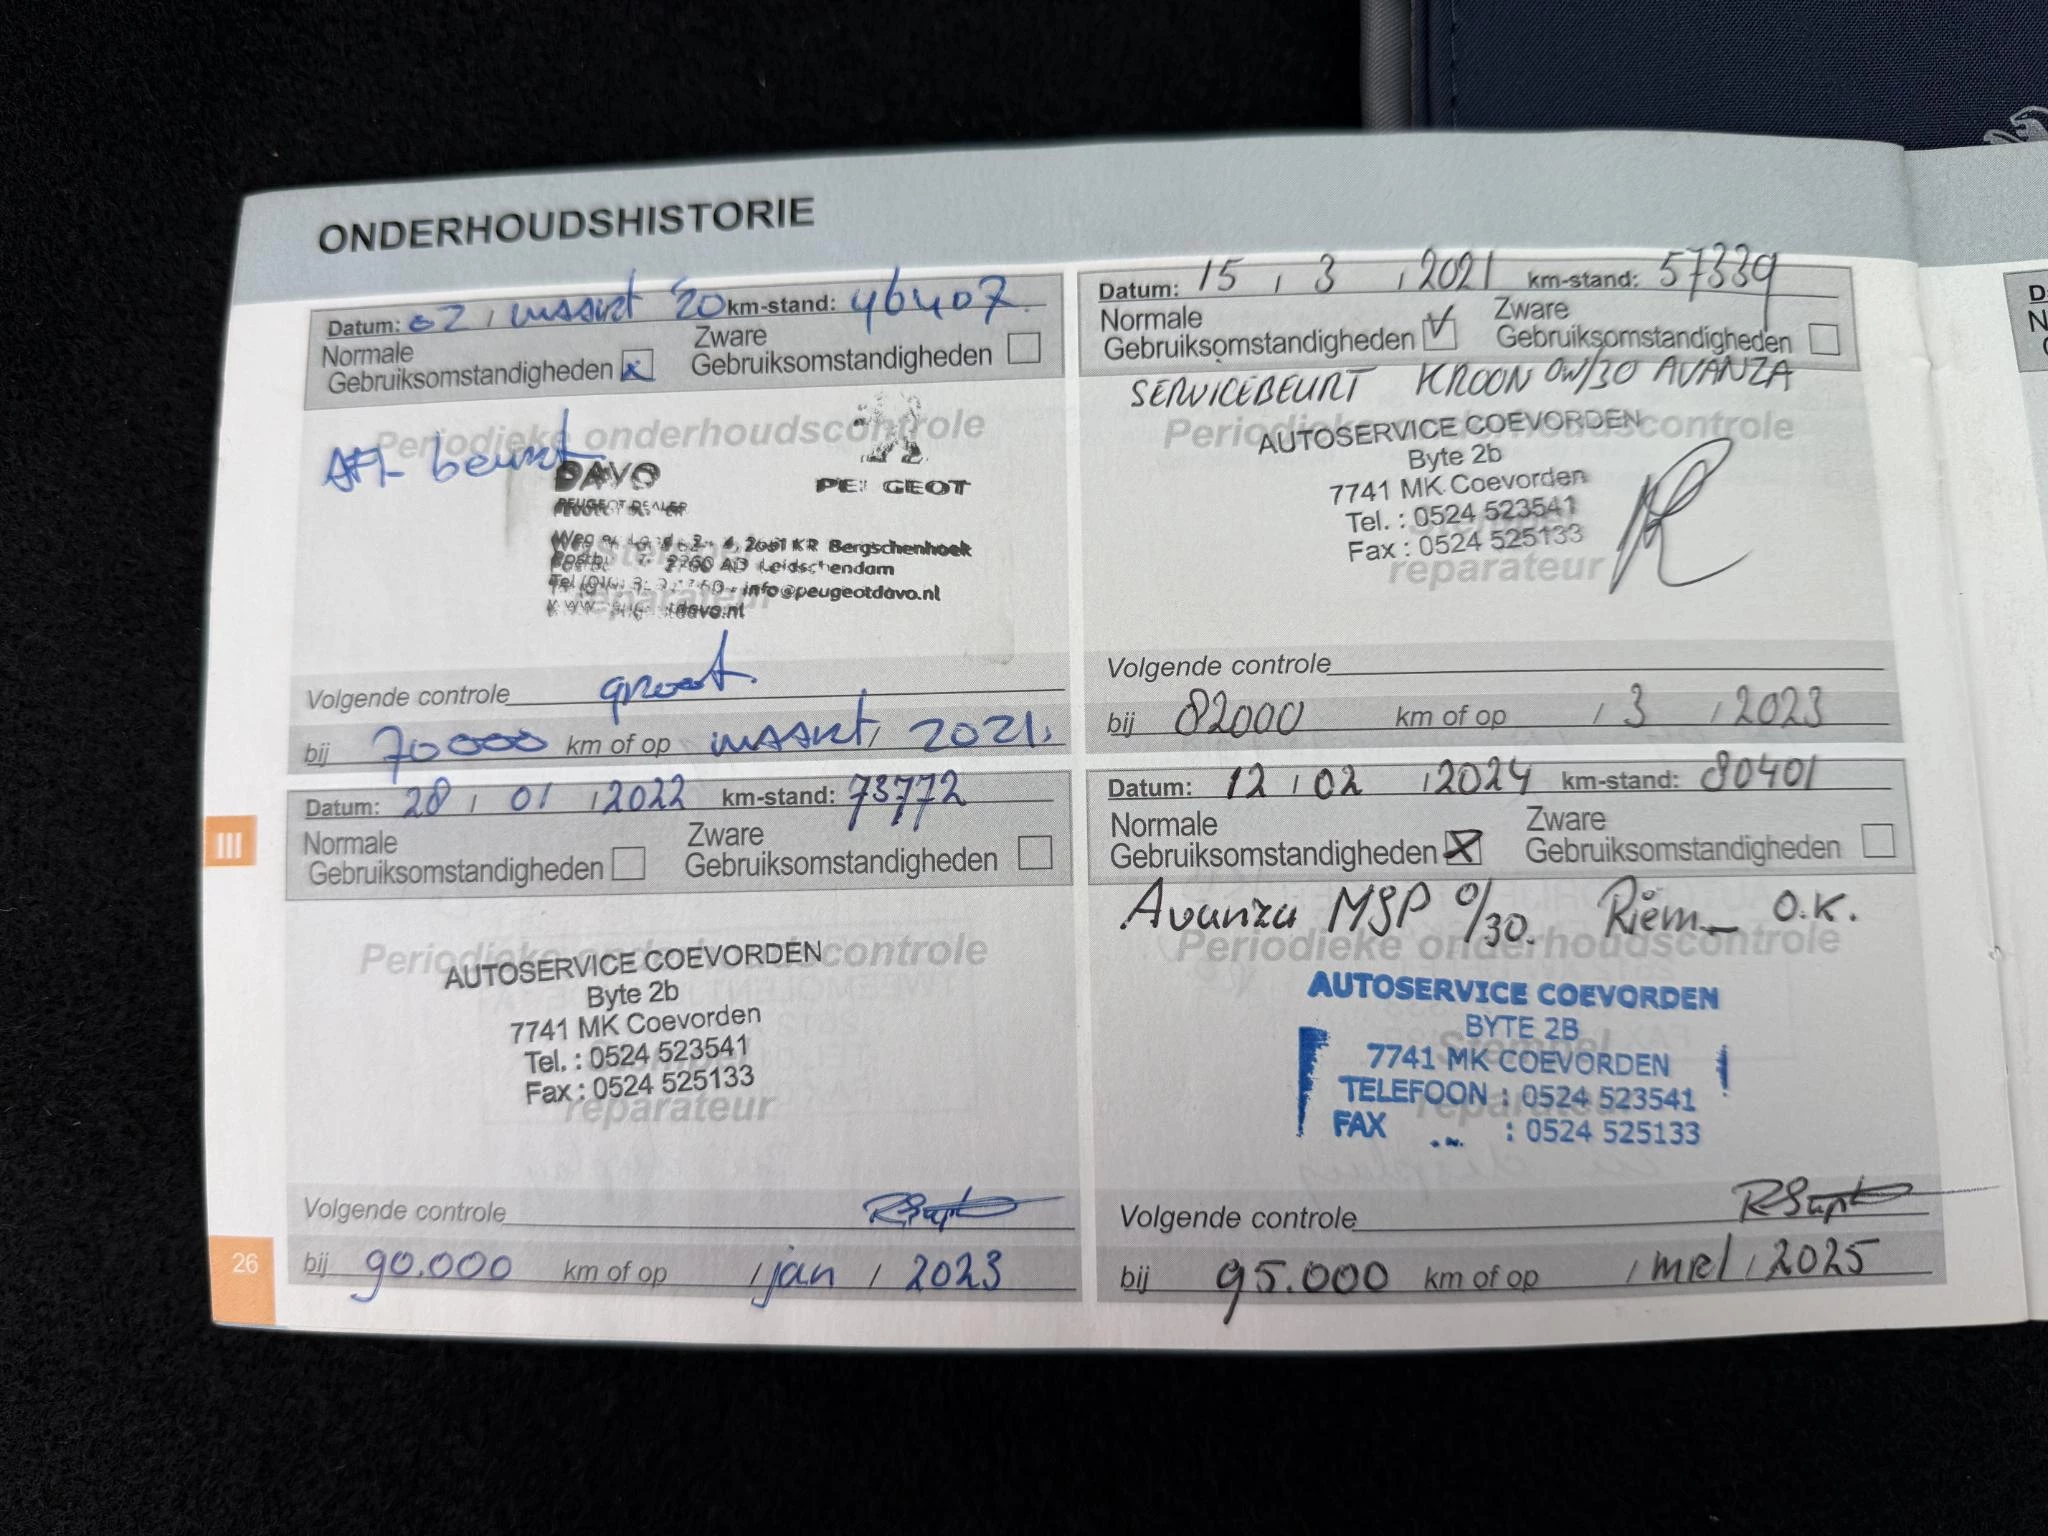 ONDERHOUDSHISTORIE
Datum: 02 / maart '20 km-stand: 46407
Normale Zware
Gebruiksomstandigheden x Gebruiksomstandigheden
Periodieke onderhoudscontrole
beurt
DAVO
PEUGEOT DEALER PEUGEOT
2661 KR Bergschenhoek
2260 AD Leidschendam
info@peugeotdavo.nl
davo.nl
Volgende controle groot.
bij 70000 km of op maart, 2021.
Datum: 15 / 3 / 2021 km-stand: 57339
Normale Zware
Gebruiksomstandigheden V Gebruiksomstandigheden
SERVICEBEURT KROON 0W/30 AVANZA
Periodieke onderhoudscontrole
AUTOSERVICE COEVORDEN
Byte 2b
7741 MK Coevorden
Tel. : 0524 523541
Fax : 0524 525133
reparateur
Volgende controle
bij 82000 km of op / 3 / 2023
Datum: 28 / 01 / 2022 km-stand: 73772
Normale Zware
Gebruiksomstandigheden Gebruiksomstandigheden
Periodieke onderhoudscontrole
AUTOSERVICE COEVORDEN
Byte 2b
7741 MK Coevorden
Tel. : 0524 523541
Fax : 0524 525133
reparateur
Volgende controle
bij 90.000 km of op / jan / 2023
Datum: 12 / 02 / 2024 km-stand: 80401
Normale Zware
Gebruiksomstandigheden X Gebruiksomstandigheden
Avanza MSP 0/30. Riem O.K.
Periodieke onderhoudscontrole
AUTOSERVICE COEVORDEN
BYTE 2B
Stempel
7741 MK COEVORDEN
TELEFOON : 0524 523541
reparateur
FAX : 0524 525133
Volgende controle
bij 95.000 km of op / mrt / 2025
III
26